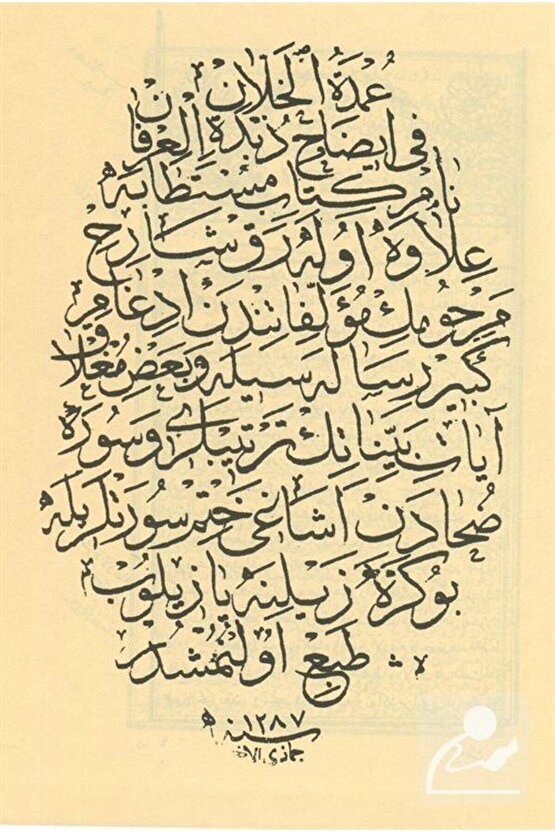 عُمْدَةُ الْخَلَّانِ
فِى اِيضَاحِ زُبْدَةِ الْعِرْفَانِ
نام كتاب مستطابه
علاوة اوله رق شارح
مرحومك مؤلفاتندن ادغام
كبير رساله سيله وبعض مغلاق
آيات بيناتك ترتيبلرى وسورۀ
ضحادن اشاغى ختم سورتلريله
بوكره زيلنه يازيلوب
طبع اولنمشدر
سنه ١٢٨٧
جماذى الاخر